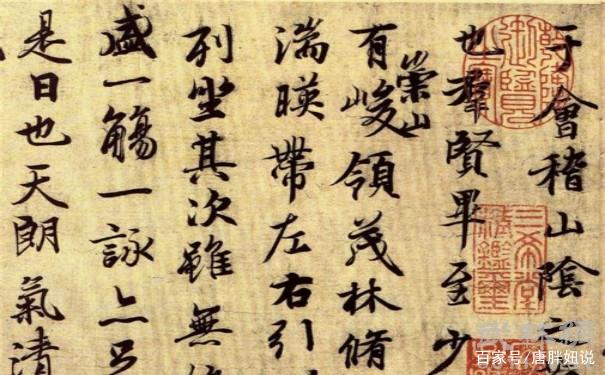 于會稽山陰
也羣賢畢至少
有崇山峻領茂林脩
湍暎帶左右引
列坐其次雖無
盛一觴一詠亦
是日也天朗氣清
三希堂精鑑璽
百家号/唐胖妞说